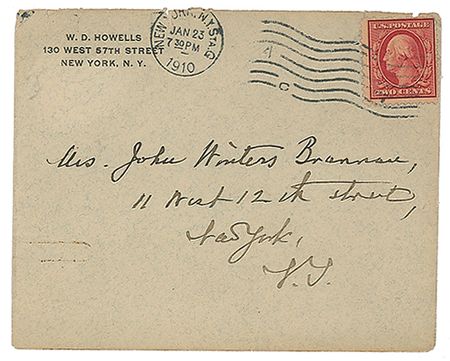 W. D. HOWELLS
130 WEST 57TH STREET
NEW YORK, N. Y.
NEW YORK, N.Y. STA. G
JAN 23
7 30 PM
1910
C
U.S. POSTAGE
TWO CENTS
Mrs. John Winters Brannan,
11 West 12th street,
New York,
N.Y.